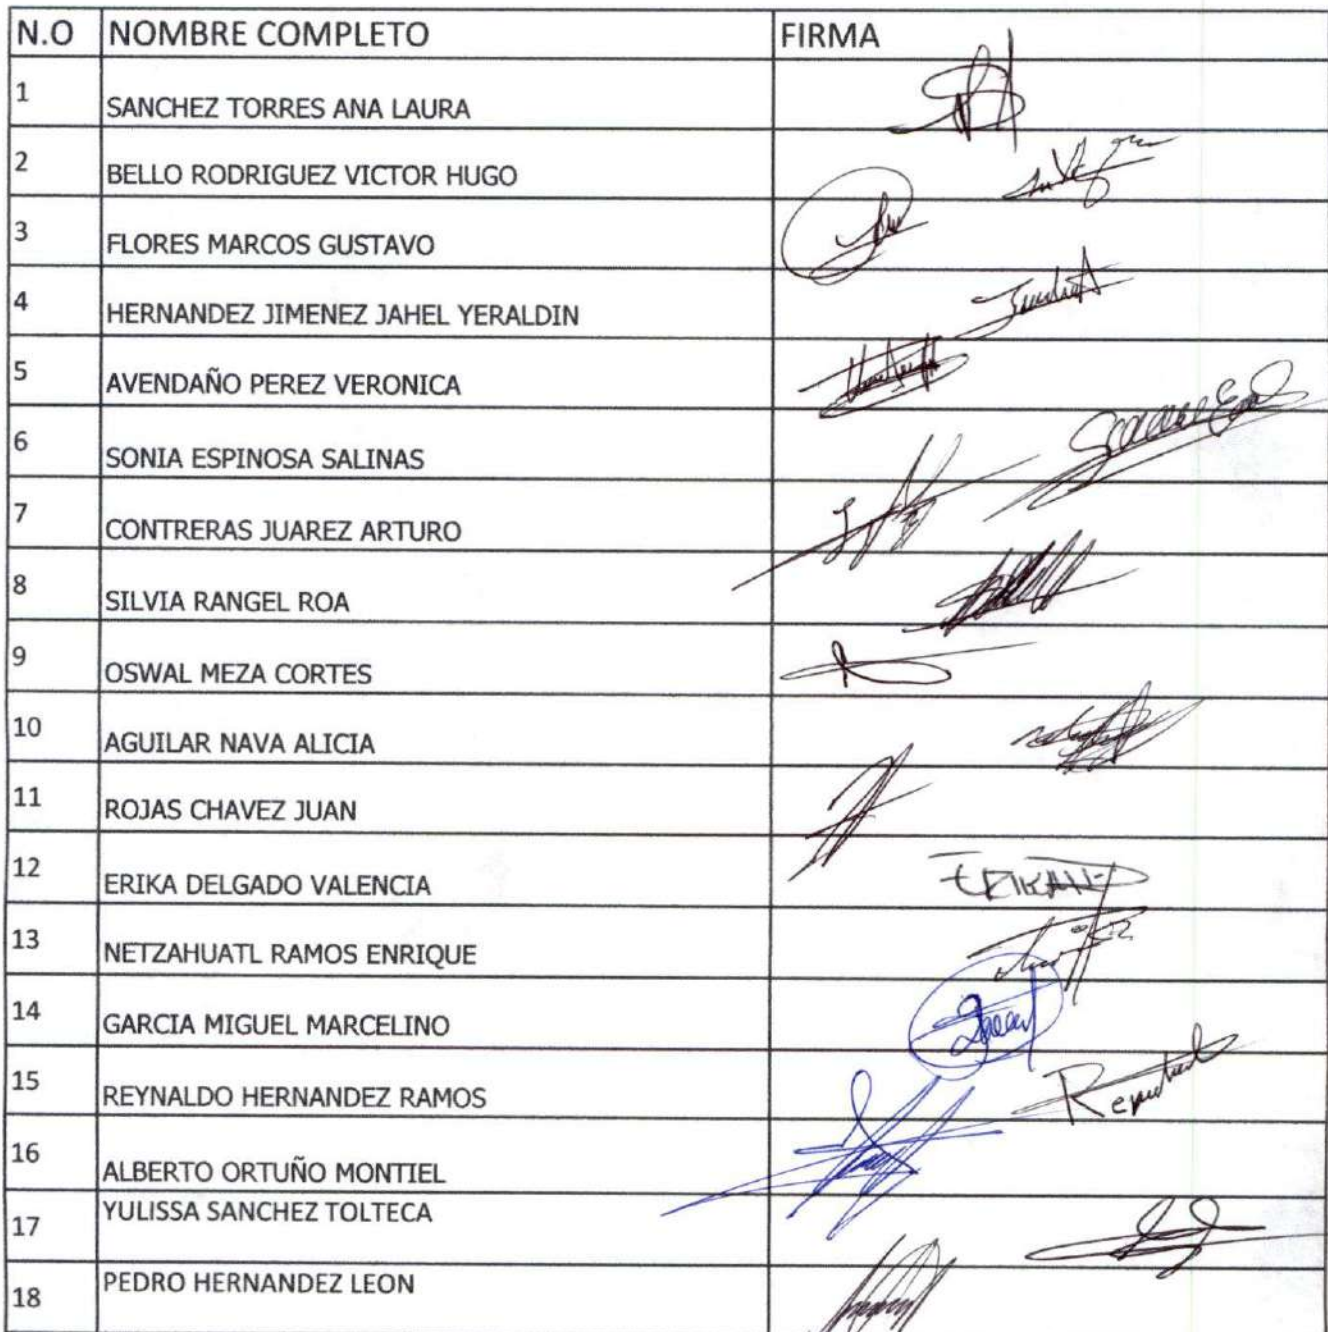 N.O NOMBRE COMPLETO FIRMA
1 SANCHEZ TORRES ANA LAURA
2 BELLO RODRIGUEZ VICTOR HUGO
3 FLORES MARCOS GUSTAVO
4 HERNANDEZ JIMENEZ JAHEL YERALDIN
5 AVENDAÑO PEREZ VERONICA
6 SONIA ESPINOSA SALINAS
7 CONTRERAS JUAREZ ARTURO
8 SILVIA RANGEL ROA
9 OSWAL MEZA CORTES
10 AGUILAR NAVA ALICIA
11 ROJAS CHAVEZ JUAN
12 ERIKA DELGADO VALENCIA
13 NETZAHUATL RAMOS ENRIQUE
14 GARCIA MIGUEL MARCELINO
15 REYNALDO HERNANDEZ RAMOS
16 ALBERTO ORTUÑO MONTIEL
17 YULISSA SANCHEZ TOLTECA
18 PEDRO HERNANDEZ LEON